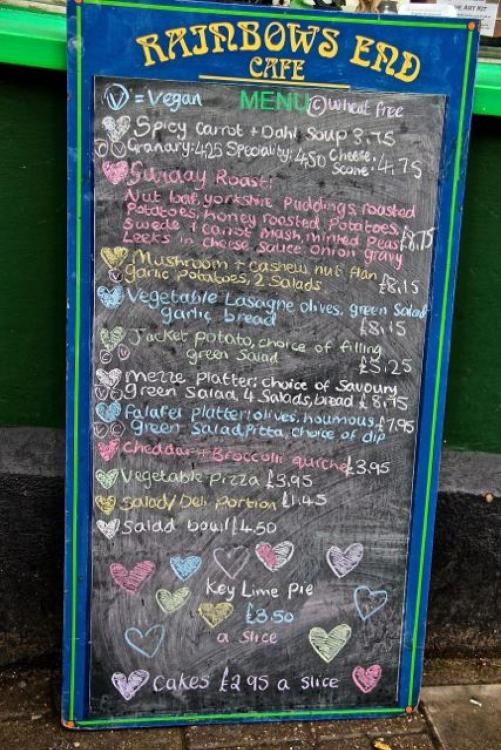 RAINBOWS END
CAFE
Ⓥ = Vegan MENU Ⓒ Wheat free
Spicy Carrot + Dahl Soup 3.75
Ⓒ Ⓥ Granary: 4.25 Speciality: 4.50 Cheese Scone: 4.75
Sunday Roast:
Nut loaf, yorkshire Puddings, roasted
Potatoes, honey roasted Potatoes,
Swede + carrot Mash, minted Peas
Leeks in cheese sauce onion gravy £8.75
Mushroom + cashew nut flan
Ⓥ garlic potatoes, 2 Salads £8.15
Vegetable Lasagne olives, green Salad
garlic bread £8.15
Jacket potato, choice of filling
Ⓒ Ⓥ green Salad £5.25
Mezze Platter; choice of Savoury
Ⓥ Green Salad, 4 Salads, bread £8.75
Falafel platter: olives, houmous, £7.95
Ⓥ Ⓒ Green Salad, Pitta, choice of dip
Cheddar + Broccolli quirche £3.95
Vegetable pizza £3.95
Salad/Deli Portion £1.45
Salad bowl £4.50
Key Lime Pie
£3.50
a slice
Cakes £2.95 a slice